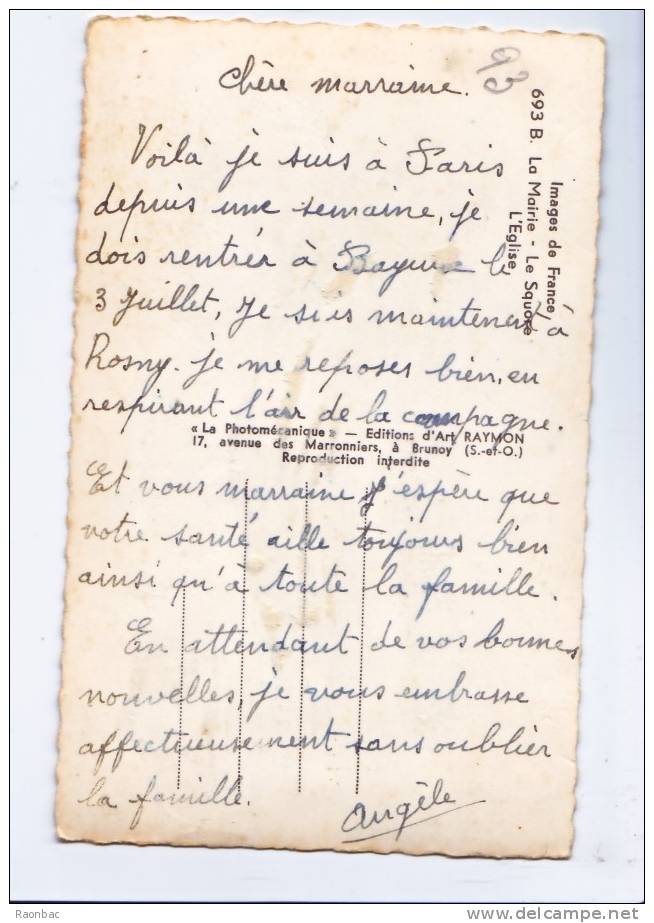 93
Chère marraine.
Images de France
693 B. La Mairie - Le Square
L'Eglise
Voilà je suis à Paris
depuis une semaine, je
dois rentrér à le
3 Juillet, Je suis maintenent à
Rosny. je me reposes bien, en
respirant l'air de la campagne.
« La Photomécanique » — Editions d'Art RAYMON
17, avenue des Marronniers, à Brunoy (S.-et-O.)
Reproduction interdite
Et vous marraine j'espère que
votre santé aille toujours bien
ainsi qu'à toute la famille.
En attendant de vos bonnes
nouvelles, je vous embrasse
affectueusement sans oublier
la famille.
Angèle
Raonbac
www.delcampe.net